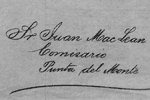 Sr Juan Mac Lean
Comisario
Punta del Monte